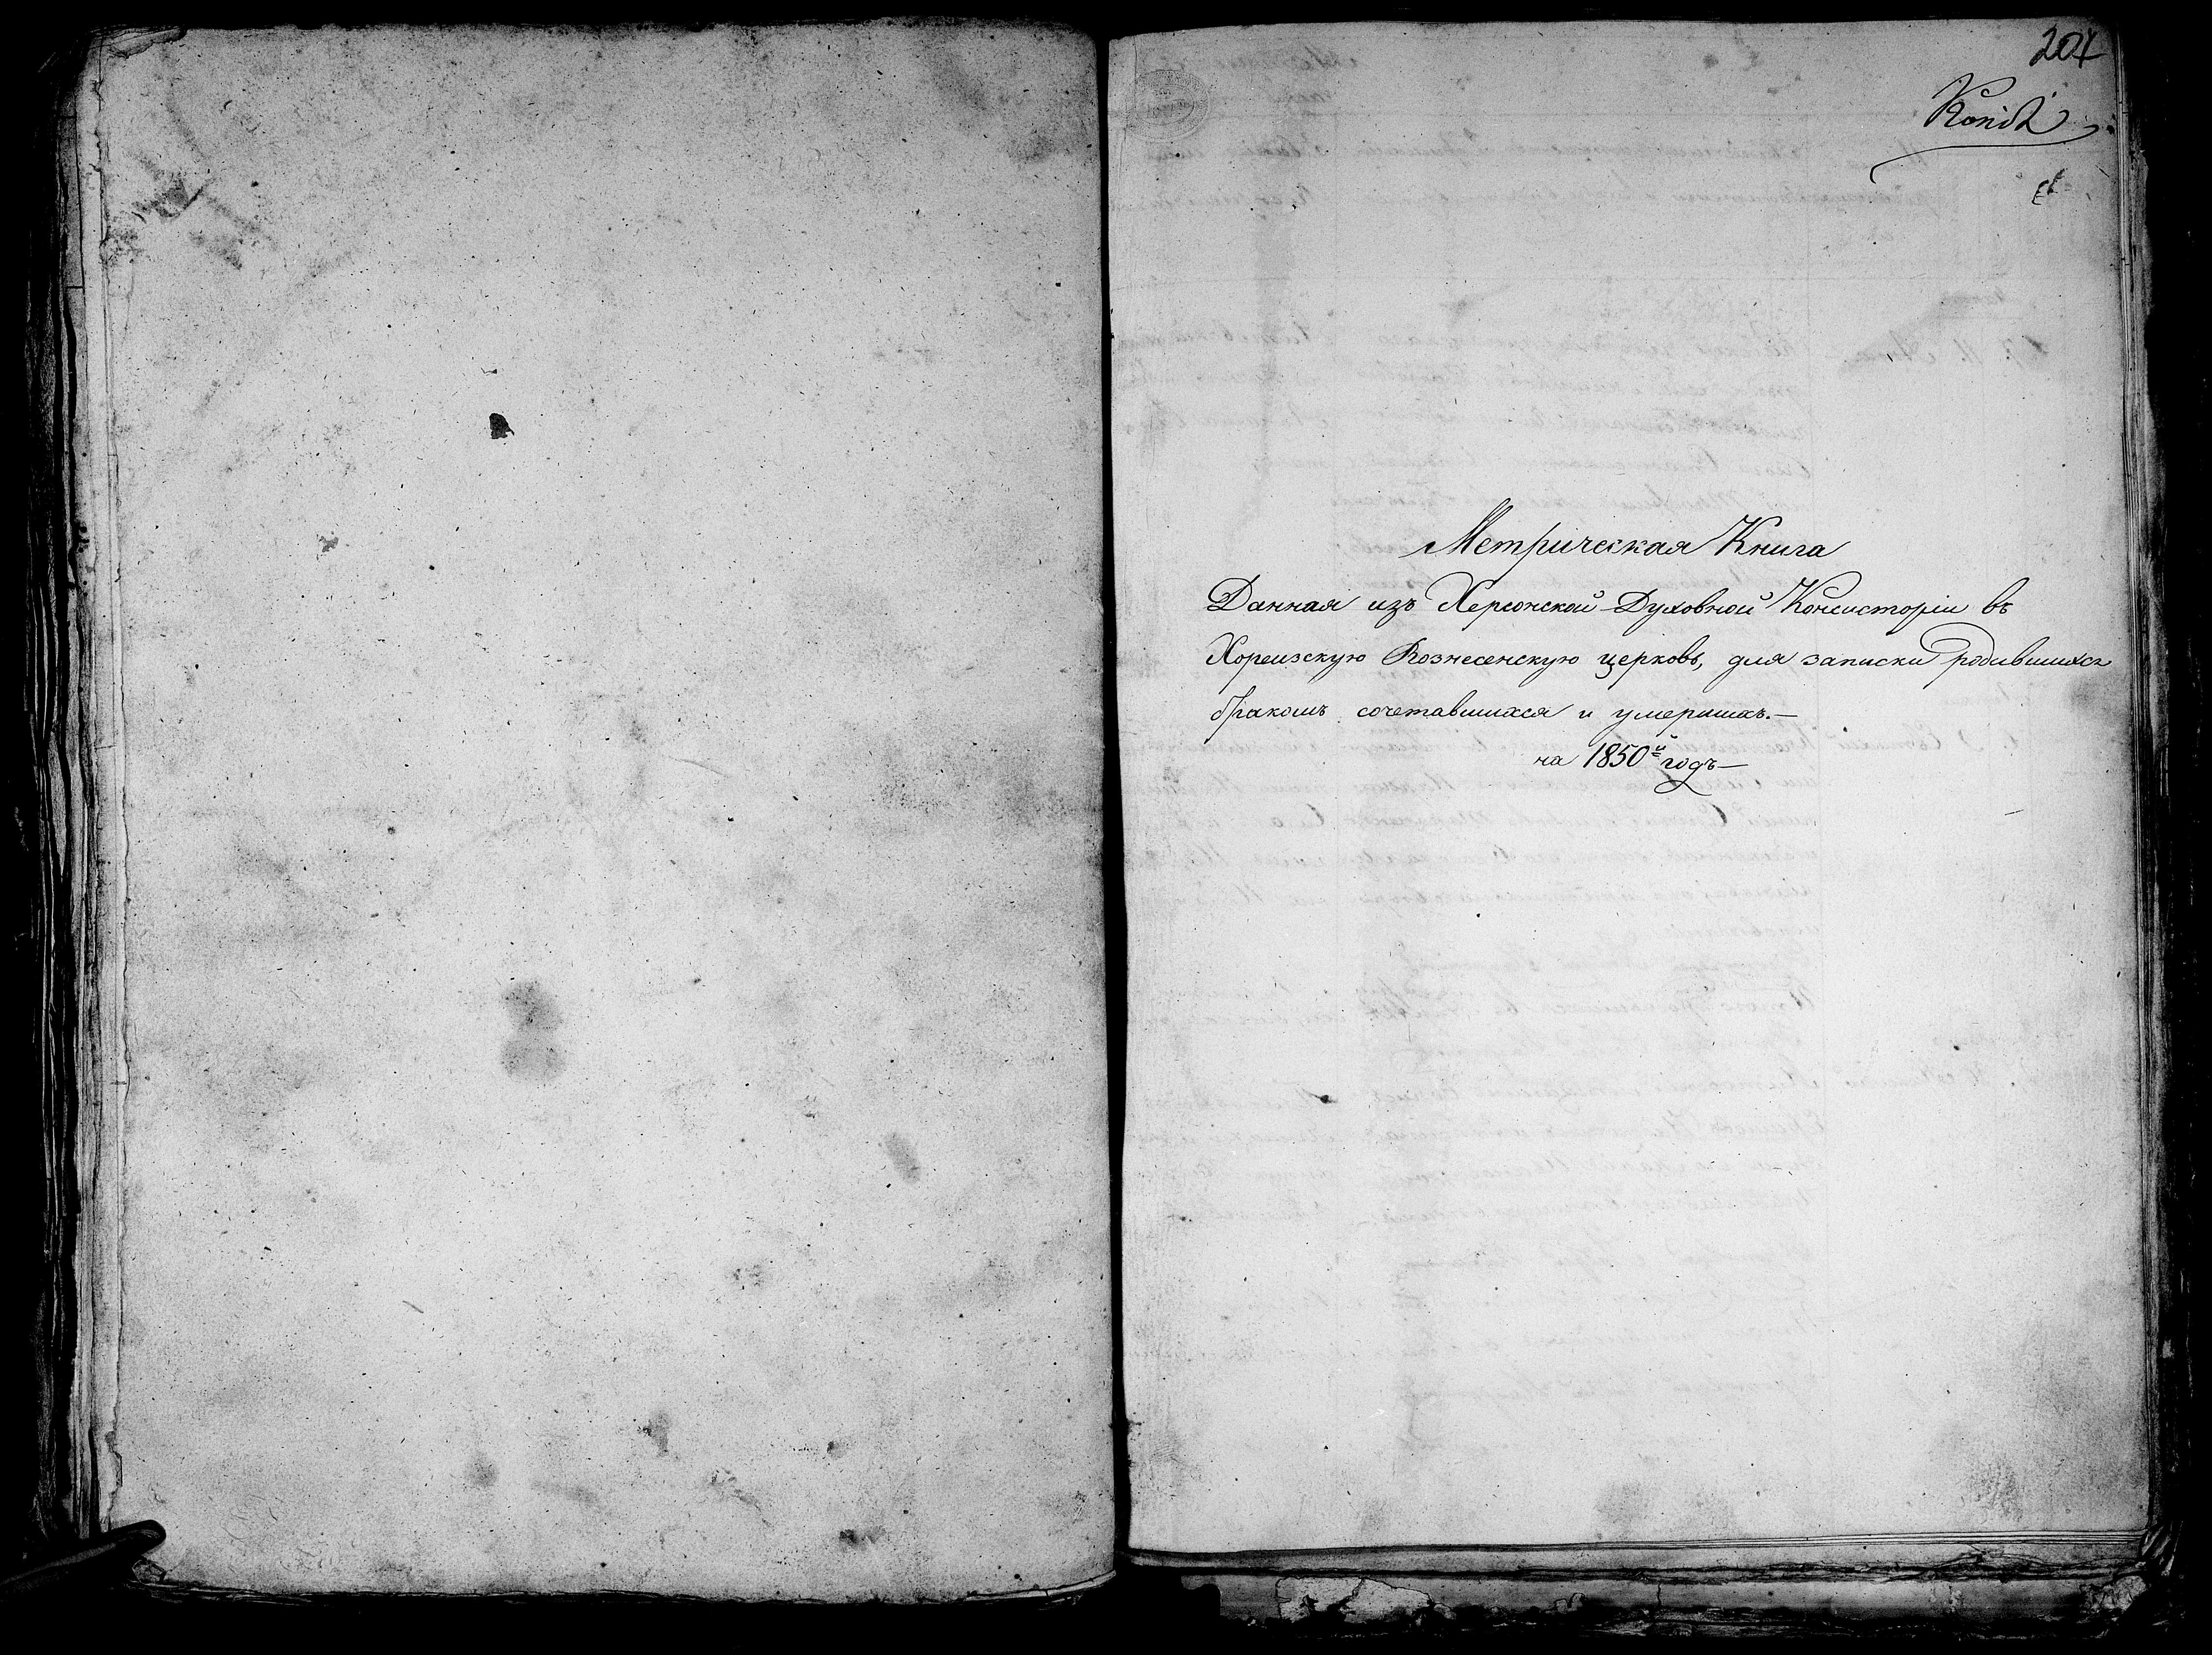 204
Копія
Метрическая Книга
Данная изъ Херсонской Духовной Консисторіи въ
Хореизскую Вознесенскую церковь, для записки родившихся
бракомъ сочетавшихся и умершихъ.—
на 1850й годъ—